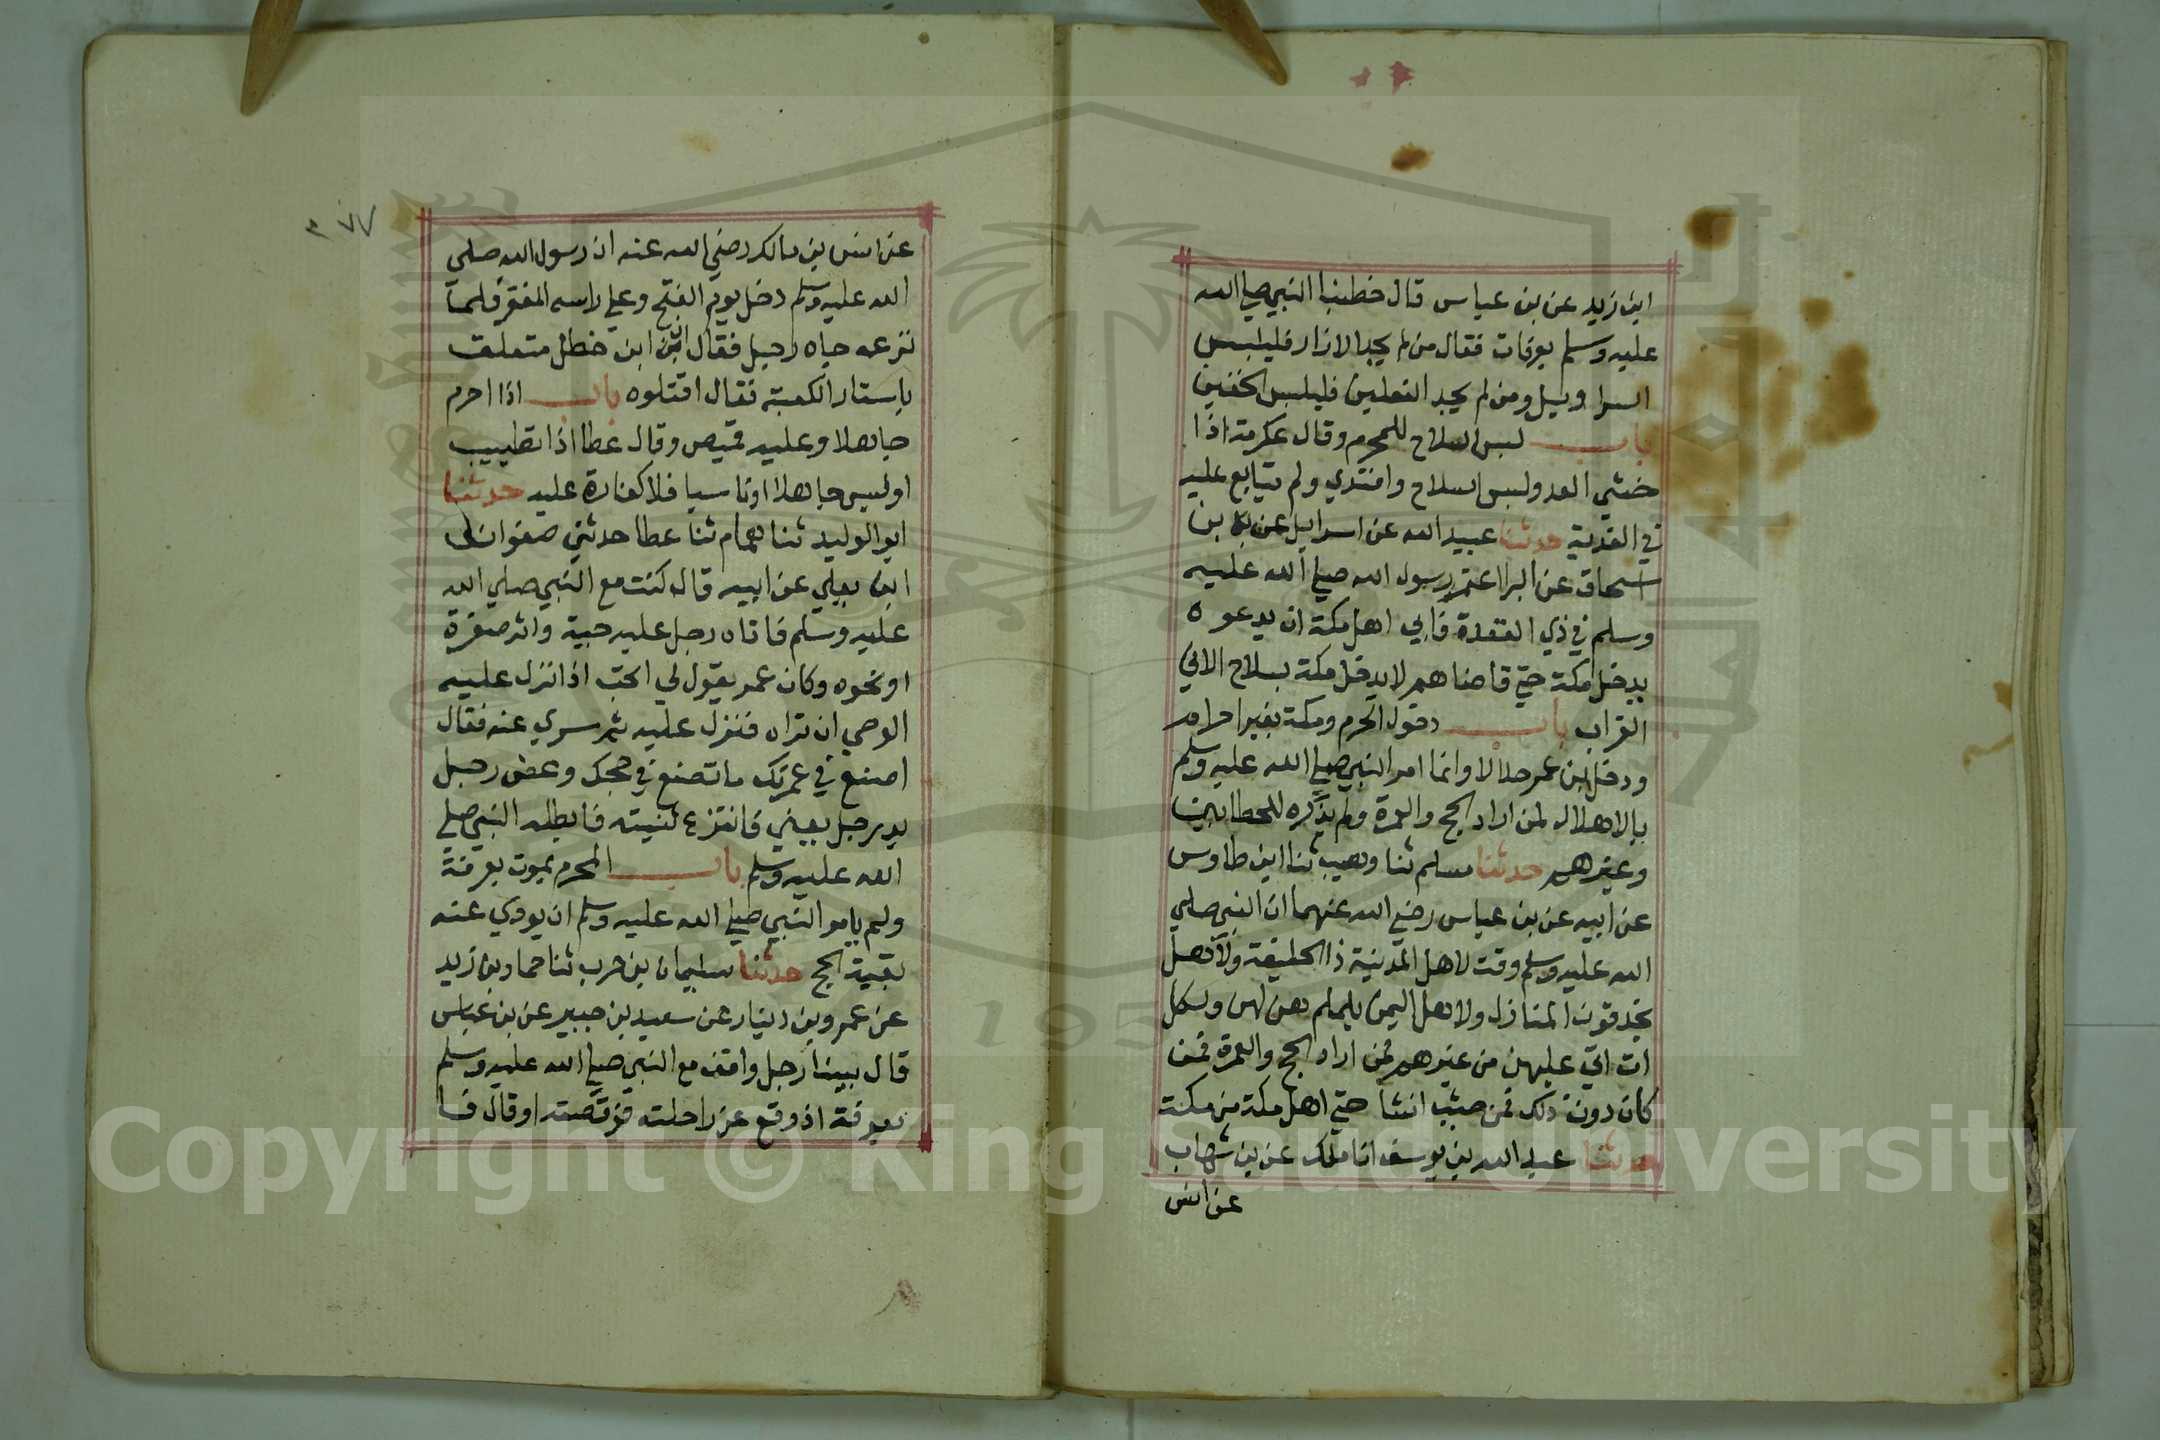 ابن زيد عن بن عباس قال خطبنا النبي صلي الله
عليه وسلم بعرفات فقال من لم يجد الازار فليلبس
السراويل ومن لم يجد النعلين فليلبس الخفين
باب لبس السلاح للمحرم وقال عكرمة اذا
خشي العدو لبس السلاح وافتدي ولم يتابع عليه
في الفدية حدثنا عبيد الله عن اسرايل عن بن
اسحاق عن البرا اعتمر رسول الله صلي الله عليه
وسلم في ذي القعدة فابي اهل مكة ان يدعوه
يدخل مكة حتي قاضاهم لا يدخل مكة بسلاح الا في
القراب باب دخول الحرم ومكة بغير احرام
ودخل بن عمر حلالا وانما امر النبي صلي الله عليه وسلم
بالاهلال لمن اراد الحج والعمرة ولم يذكره للحطابين
وغيرهم حدثنا مسلم ثنا وهيب ثنا ابن طاوس
عن ابيه عن بن عباس رضي الله عنهما ان النبي صلي
الله عليه وسلم وقت لاهل المدينة ذا الحليفة ولاهل
نجد قرن المنازل ولاهل اليمن يلملم هن لهن ولكل
ات اتي عليهن من غيرهم ممن اراد الحج والعمرة فمن
كان دون ذلك فمن حيث انشا حتي اهل مكة من مكة
حدثنا عبد الله بن يوسف انا مالك عن بن شهاب
عن انس
٣٧٧
عن انس بن مالك رضي الله عنه ان رسول الله صلي
الله عليه وسلم دخل يوم الفتح وعلي راسه المغفر فلما
نزعه جاه رجل فقال ابن خطل متعلق
باستار الكعبة فقال اقتلوه باب اذا احرم
جاهلا وعليه قميص وقال عطا اذا تطيب
او لبس جاهلا او ناسيا فلا كفارة عليه حدثنا
ابو الوليد ثنا همام ثنا عطا حدثني صفوان
ابن يعلي عن ابيه قال كنت مع النبي صلي الله
عليه وسلم فاتاه رجل عليه جبة واثر صفرة
او نحوه وكان عمر يقول لي اتحب اذا نزل عليه
الوحي ان تراه فنزل عليه ثم سري عنه فقال
اصنع في عمرتك ما تصنع في حجك وعض رجل
يد رجل يعني فانتزع ثنيته فابطله النبي صلي
الله عليه وسلم باب المحرم يموت بعرفة
ولم يامر النبي صلي الله عليه وسلم ان يودي عنه
بقية الحج حدثنا سليمان بن حرب ثنا حماد بن زيد
عن عمرو بن دينار عن سعيد بن جبير عن بن عباس
قال بينا رجل واقف مع النبي صلي الله عليه وسلم
بعرفة اذ وقع عن راحلته فوقصته او قال فا
Copyright © King Saud University
195